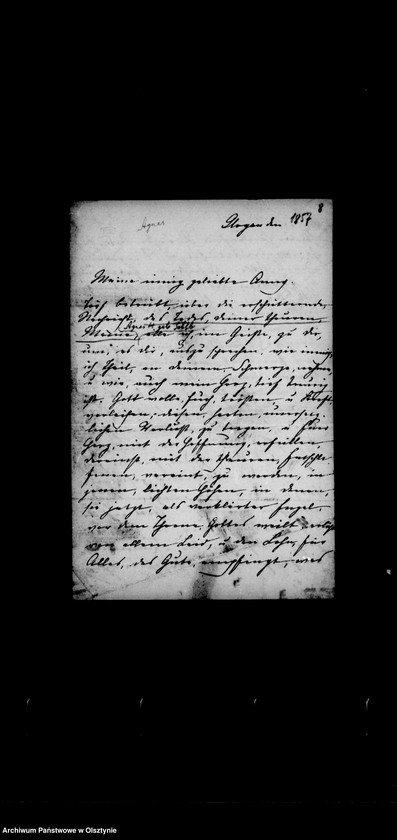 8
Agnes
Glogau den 1857
Meine innig geliebte Anny.
Tief betrübt, über die erschütternde
Nachricht, des Todes, deiner theuren
im Geiste, zu dir,
um, es dir, auszusprechen, wie innig,
ich Theil, an deinem, Schmerze, nehme,
u wie, auch mein Herz, tief traurig
ist. Gott wolle, Euch, trösten, u Kraft
verleihen, diesen, harten, unersetz-
lichen Verlust, zu tragen, u Euer
Herz, mit der Hoffnung, erfüllen,
dereinst, mit der theuren,
vereint, zu werden, in
jenen, lichten Höhen, in denen,
sie jetzt, als verklärter Engel
vor dem Throne, Gottes weilt
von allem Leid, u den Lohn, für
Alles, das Gute, empfängt, was
Archiwum Państwowe w Olsztynie